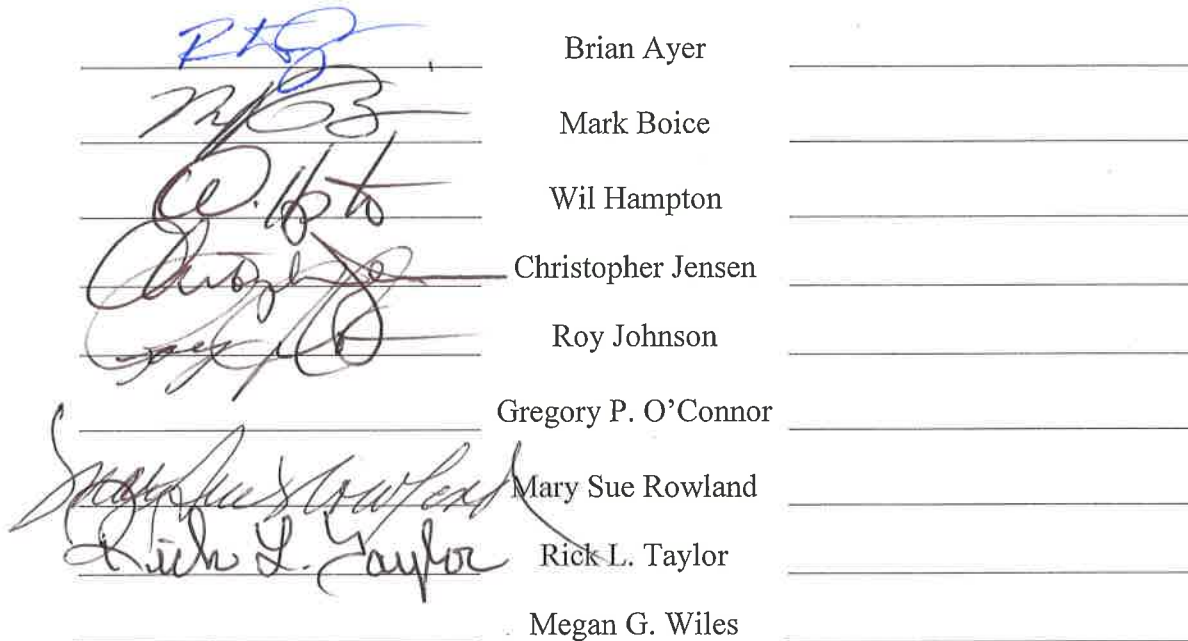 Brian Ayer
Mark Boice
W. Hpto Wil Hampton
Christopher Jensen
Roy Johnson
Gregory P. O'Connor
Mary Sue Rowland Mary Sue Rowland
Rick L. Taylor Rick L. Taylor
Megan G. Wiles